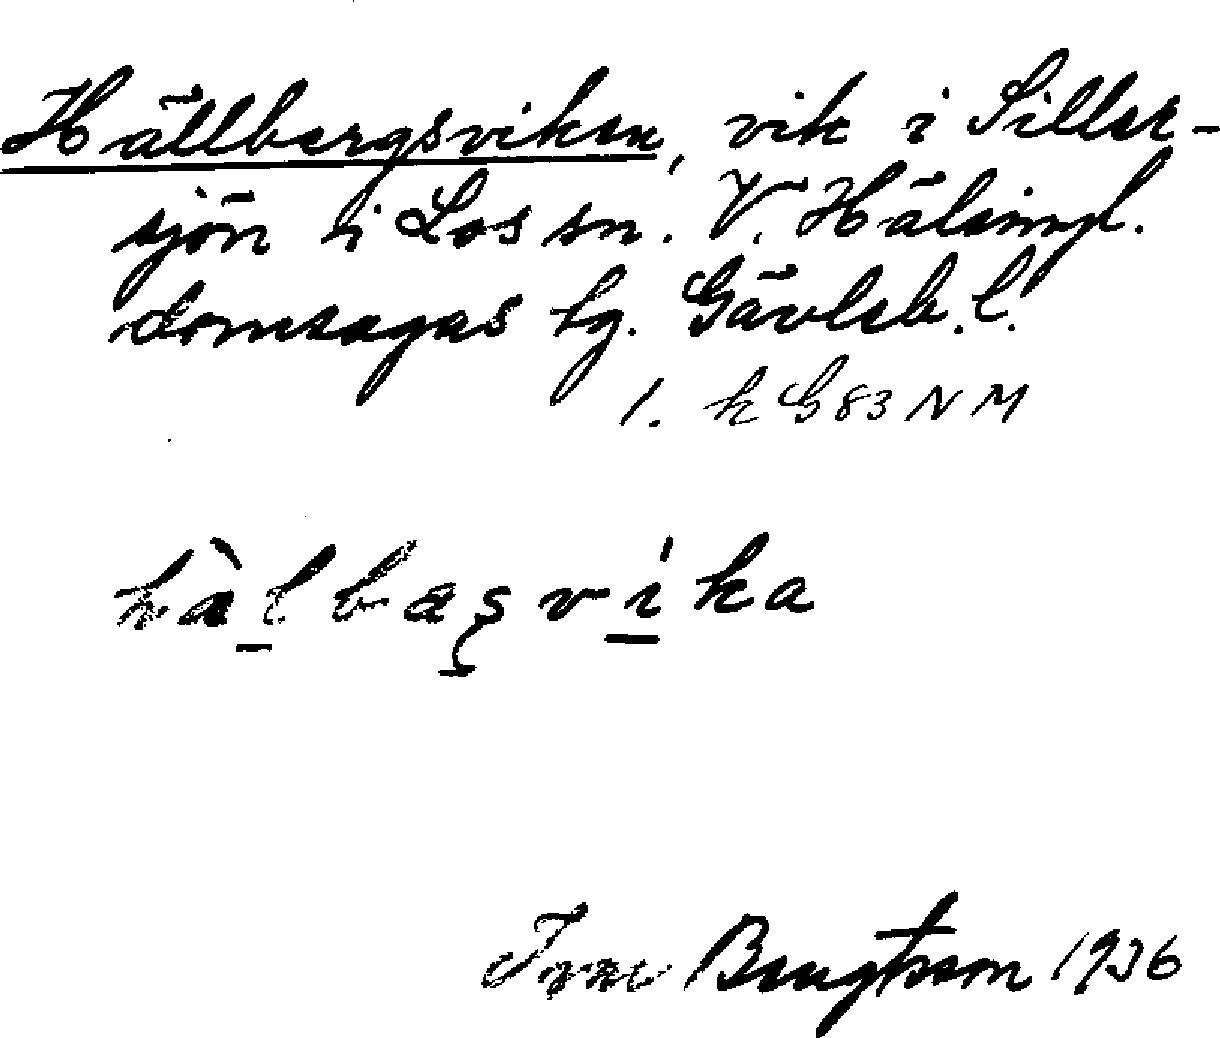 Hällbergsviken, vik i Siller-
sjön i Los sn. V. Hälsingl.
domsagas tg. Gävleb. l.
1. k G 83 N M
hàlbæșvika
Bengtsson 1936